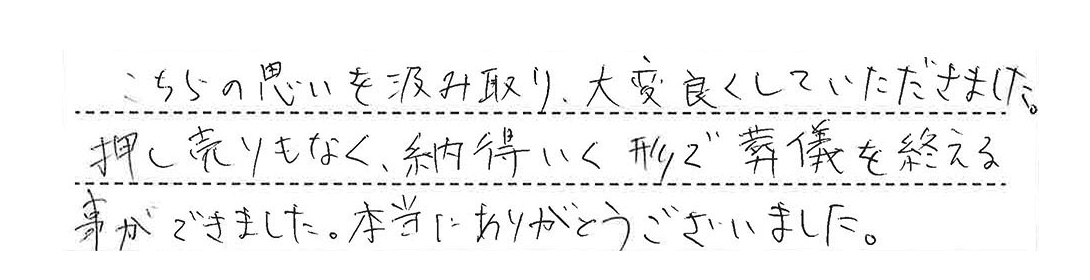 こちらの思いを汲み取り、大変良くしていただきました。
押し売りもなく、納得いく形で葬儀を終える
事ができました。本当にありがとうございました。